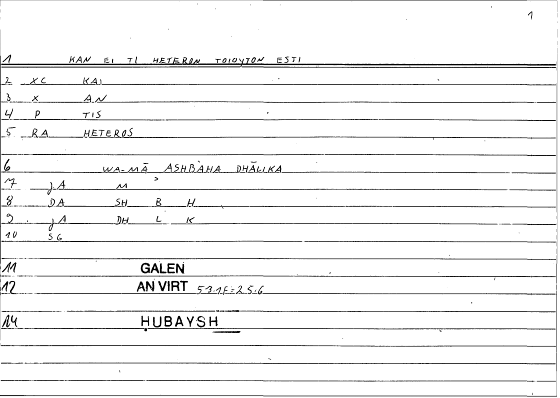 1
1 KAN EI TI HETERON TOIOYTON ESTI
2 XC KAI
3 X AN
4 P TIS
5 RA HETEROS
6 WA-MĀ ASHBAHA DHĀLIKA
7 JA M ʾ
8 DA SH B H
9 JA DH L K
10 SG
11 GALEN
12 AN VIRT
14 ḤUBAYSH